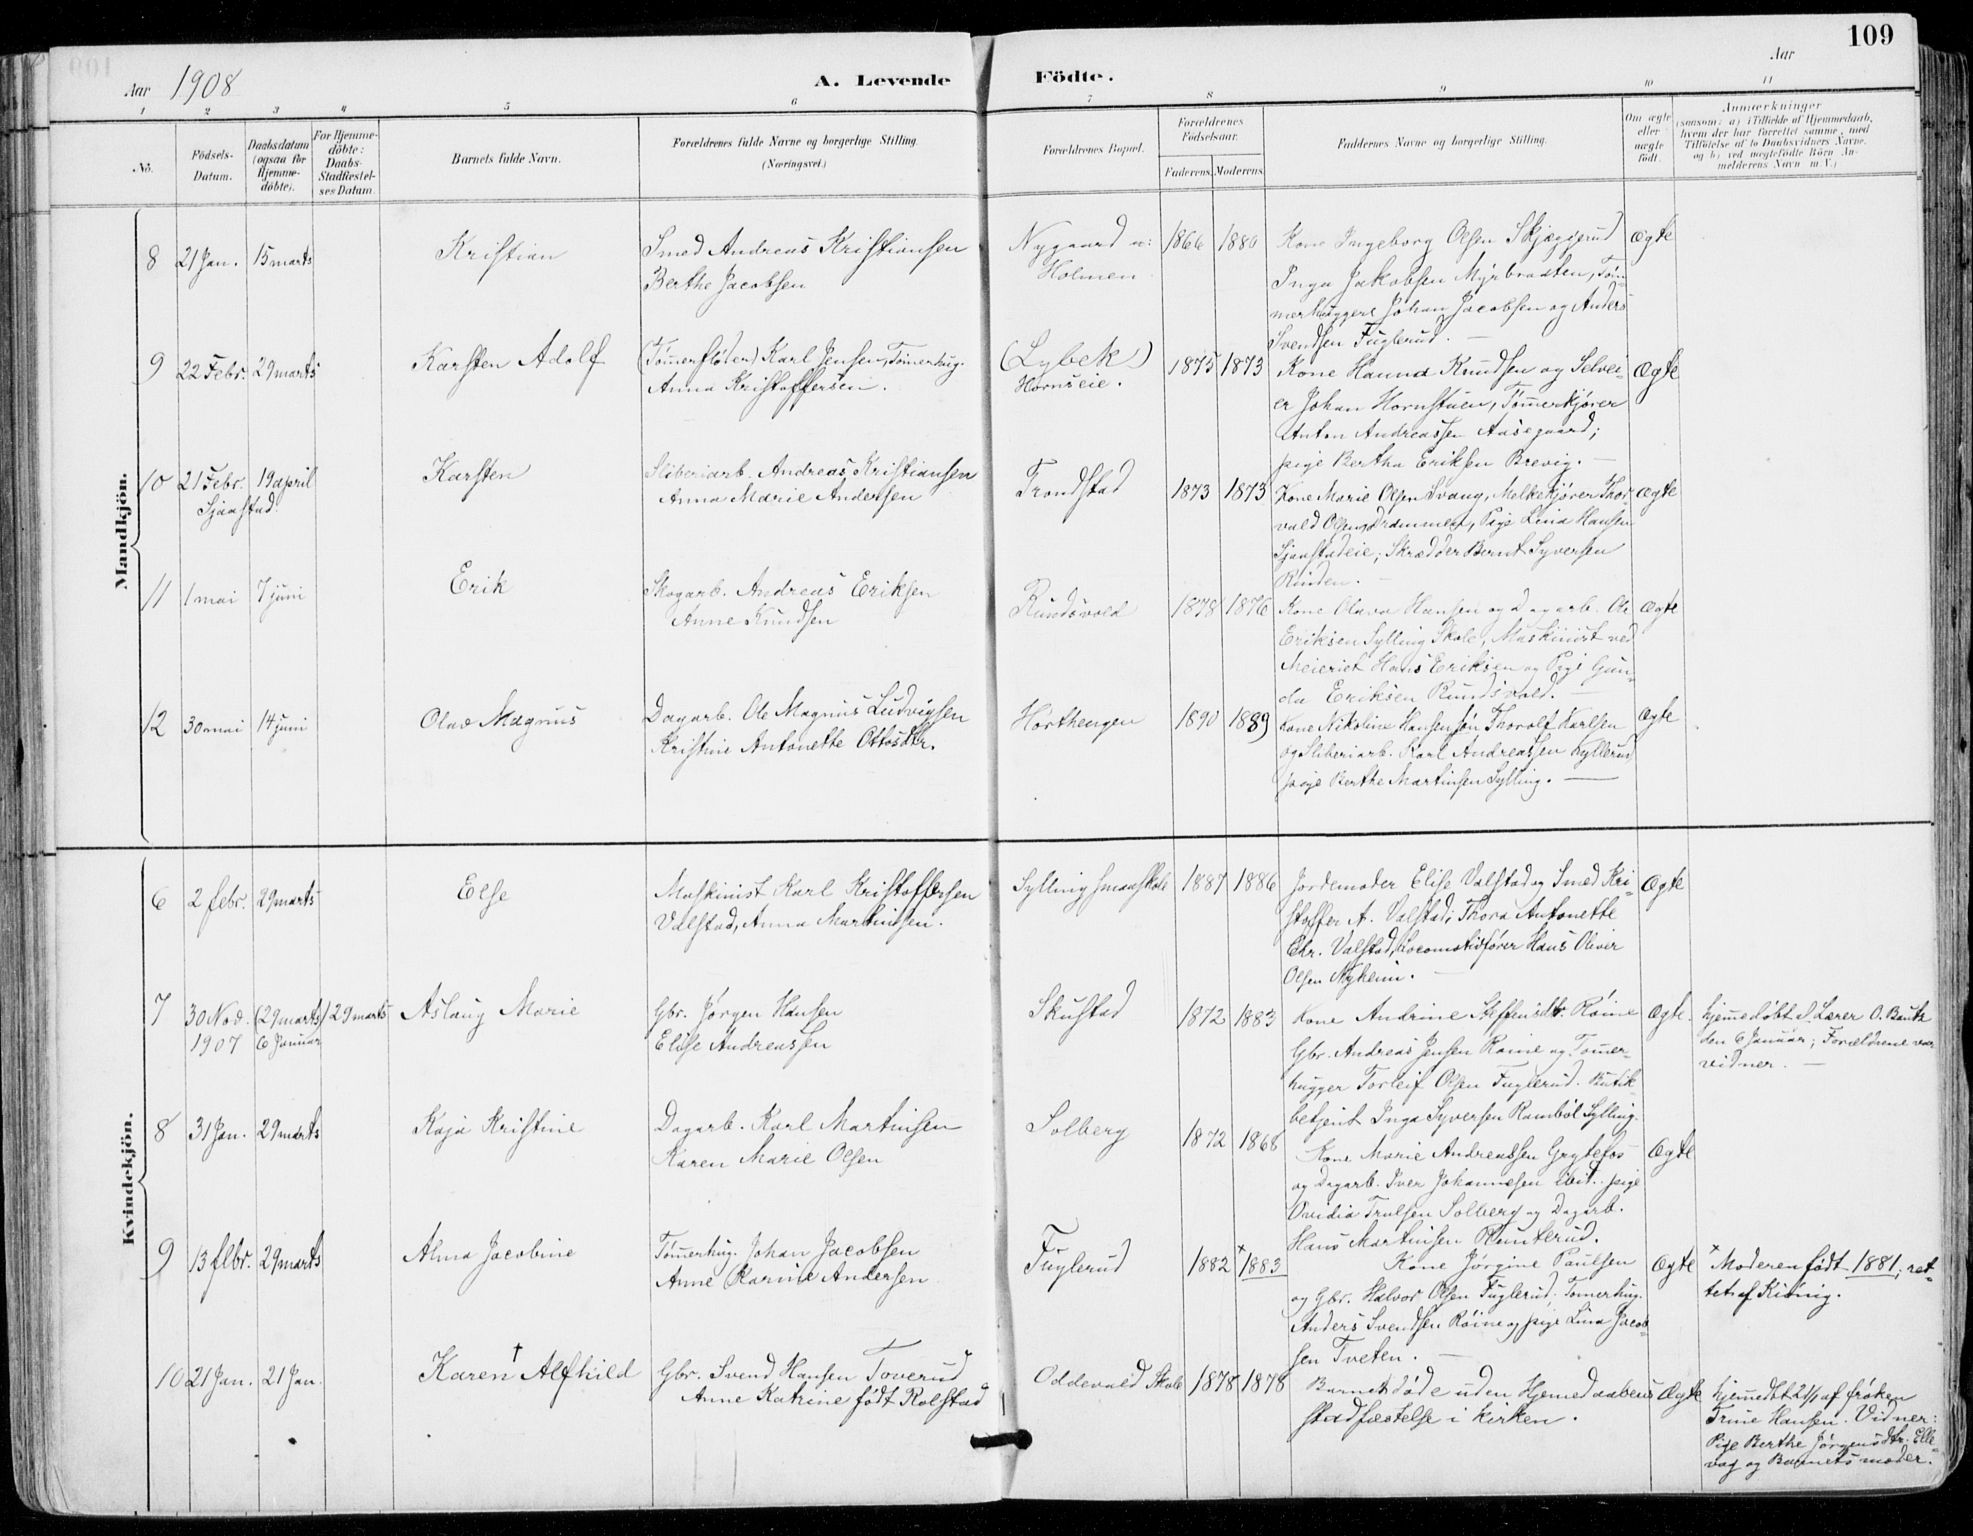 109
Aar 1908
A. Levende Födte.
Aar
1 2 3 4 5 6 7 8 9 10 11
No.
Födsels-
Datum.
Daabsdatum
(ogsaa for
Hjemme-
döbte).
For Hjemme-
döbte:
Daabs-
Stadfæstel-
ses Datum.
Barnets fulde Navn.
Forældrenes fulde Navne og borgerlige Stilling.
(Næringsvei.)
Forældrenes Bopæl.
Forældrenes
Födselsaar.
Faderens. Moderens.
Faddernes Navne og borgerlige Stilling.
Om ægte
eller
uægte
födt.
Anmærkninger
(saasom: a) i Tilfælde af Hjemmedaab,
hvem der har forrettet samme, med
Tilföielse af to Daabsvidners Navne,
og b) ved uægtefödte Börn An-
melderens Navn m. V.)
Mandkjön.
8 21 Jan. 15 marts
Kristian
Smed Andreas Kristiansen
Berthe Jacobsen
Nygaard u:
Holmen
1866 1880
Kone Ingeborg Olsen Skjæggerud
Inga Jakobsen Myrbraaten, Tøm-
merhuggere Johan Jacobsen og Anders
Svendsen Fuglerud.
Ægte
9 22 Febr. 29 marts
Karsten Adolf
(Tømerfløder) Karl Jensen, Tømerhug.
Anna Kristoffersen.
(Lybek)
Hornseie.
1875 1873
Kone Hanna Knudsen og Selvei-
er Johan Hornstuen, Tømerkjører
Anton Andreassen Aasegaard;
pige Bertha Eriksen Brevig.
Ægte
10 21 Febr. 19 april
Sjaastad
Karsten
Sliberiarb. Andreas Kristiansen
Anna Marie Andersen
Trondstad
1873 1873
Kone Marie Olsen Svang, Melkekjører Thor-
vald Olsen, Drammen, Pige Lina Hansen
Sjaastadeie; Skrædder Bernt Syversen
Rinden.
Ægte
11 1 mai 7 juni
Erik
Skogarb. Andreas Eriksen
Anne Knudsen
Rundsvold
1878 1876
Kone Olava Hansen og Dagarb. Ole
Eriksen Sylling Skole, Maskinist ved
Meieriet Hans Eriksen og Pige Gun-
da Eriksen Rundsvold.
Ægte
12 30 mai 14 juni
Olav Magnus
Dagarb. Ole Magnus Ludvigsen
Kristine Antonette Ottosdtr.
Horthengen
1890 1889
Kone Nikoline Hansen, Thorolf Karlsen
og Sliberiarb. Karl Andreassen Hyllerud
pige Berthe Martinsen Sylling.
Ægte
Kvindekjön.
6 2 febr. 29 marts
Else
Maskinist Karl Kristoffersen
Valstad, Anna Martinsen.
Sylling smaaskole
1887 1886
Jordemoder Elise Valstad og Smed Kri-
stoffer A. Valstad; Thora Antonette
Chr. Valstad, Locomotivfører Hans Oliver
Olsen Nyheim.
Ægte
7 30 Nov. (29 marts) 29 marts
1907 6 Januar
Aslaug Marie
Gbr. Jørgen Hansen
Elise Andreassen
Skustad
1872 1883
Kone Andrine Steffensdtr. Røine
Gbr. Andreas Jensen Røine og Tømer-
hugger Torleif Olsen Fuglerud. Butik-
betjent Inga Syversen Rambøl Sylling.
Ægte.
hjemedøbt af Lærer O. Bauth
den 6 Januar; Forældrene var
vidner.
8 31 Jan. 29 marts
Kaja Kristine
Dagarb. Karl Martinsen
Karen Marie Olsen
Solberg
1872 1868
Kone Marie Andreassen Grytefos
og Dagarb. Iver Johannesen ibid. pige
Ovidia Trulsen Solberg og Dagarb.
Hans Martinsen Plunterud.
Ægte
9 13 febr. 29 marts
Alma Jacobine
Tømerhug. Johan Jacobsen
Anne Karine Andersen
Fuglerud
1882 +1883
Kone Jørgine Paulsen
og Gbr. Halvor Olsen Fuglerud; Tømerhug.
Anders Svendsen Røine og pige Lina Jacob-
sen Tveten.
Ægte
+ Moderen født 1881; ret-
tet af Kiønig.
10 21 Jan. 21 Jan.
†
Karen Alfhild
Gbr. Svend Hansen Toverud
Anne Katrine født Rolstad
Oddevold Skole
1878 1878
Barnet døde uden Hjemedaabens
stadfæstelse i kirken.
Ægte
hjemedøbt 21/1 af frøken
Trine Hansen. Vidner:
Pige Berthe Jørgensdtr. Elle-
vog og Barnets moder.